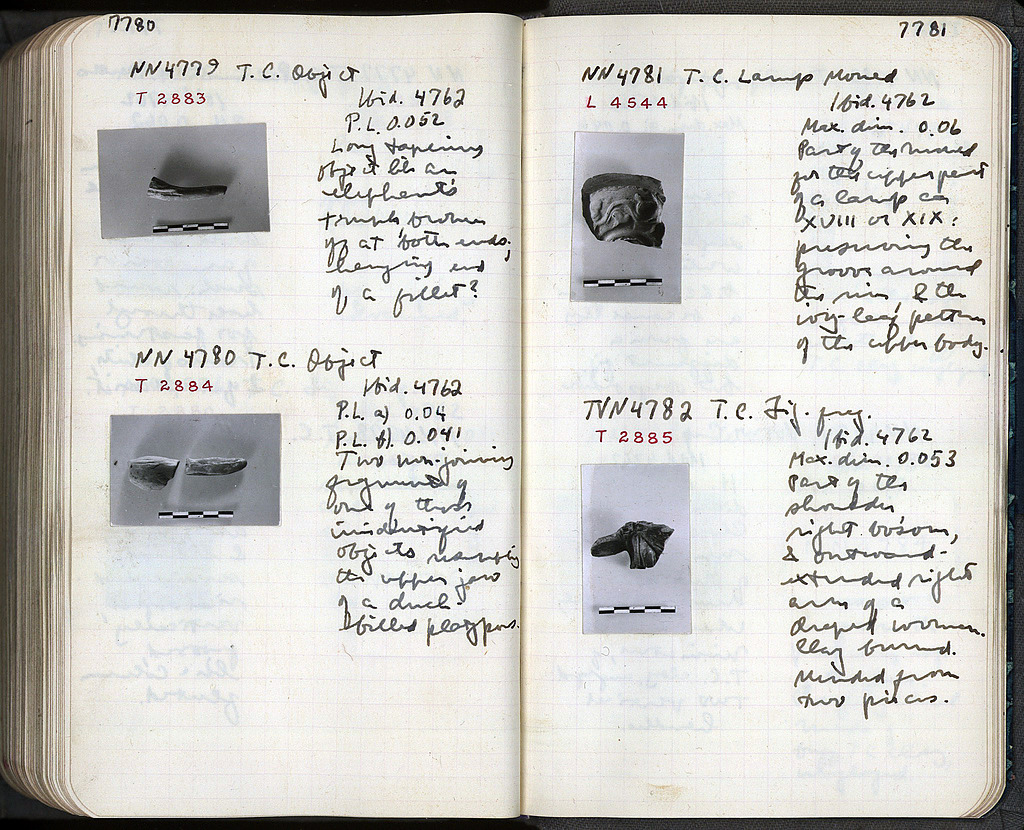 7780
NN4779 T.C. Object
T 2883
Ibid. 4762
P.L. 0.052
Long tapering
object like an
elephant's
trunk, broken
off at both ends;
hanging end
of a fillet?
NN 4780 T.C. Object
T 2884
Ibid. 4762
P.L. a) 0.04
P.L. b) 0.041
Two non-joining
fragments of
one of those
unidentified
objects resembling
the upper jaw
of a duck-
billed platypus.
7781
NN4781 T.C. Lamp Mould
L 4544
Ibid. 4762
Max. dim. 0.06
Part of the mould
for the upper part
of a lamp as
XVIII or XIX:
preserving the
groove around
the rim, & the
ivy-leaf pattern
of the upper body.
NN4782 T.C. Fig. frag.
T 2885
Ibid. 4762
Max. dim. 0.053
Part of the
shoulder,
right bosom,
& outward-
extended right
arm of a
draped woman.
Clay burned.
Mended from
two pieces.